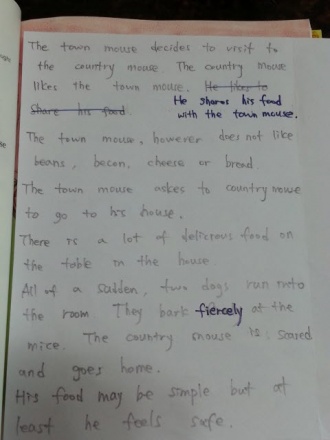 The town mouse decides to visit to
the country mouse. The country mouse
likes the town mouse. He likes to
share his food. He shares his food
with the town mouse.
The town mouse, however does not like
beans, becon, cheese or bread
The town mouse askes to country mouse
to go to his house.
There is a lot of delicious food on
the table in the house.
All of a sudden, two dogs run into
the room They bark fiercely at the
mice. The country mouse is scared
and goes home.
His food may be simple but at
least he feels safe.